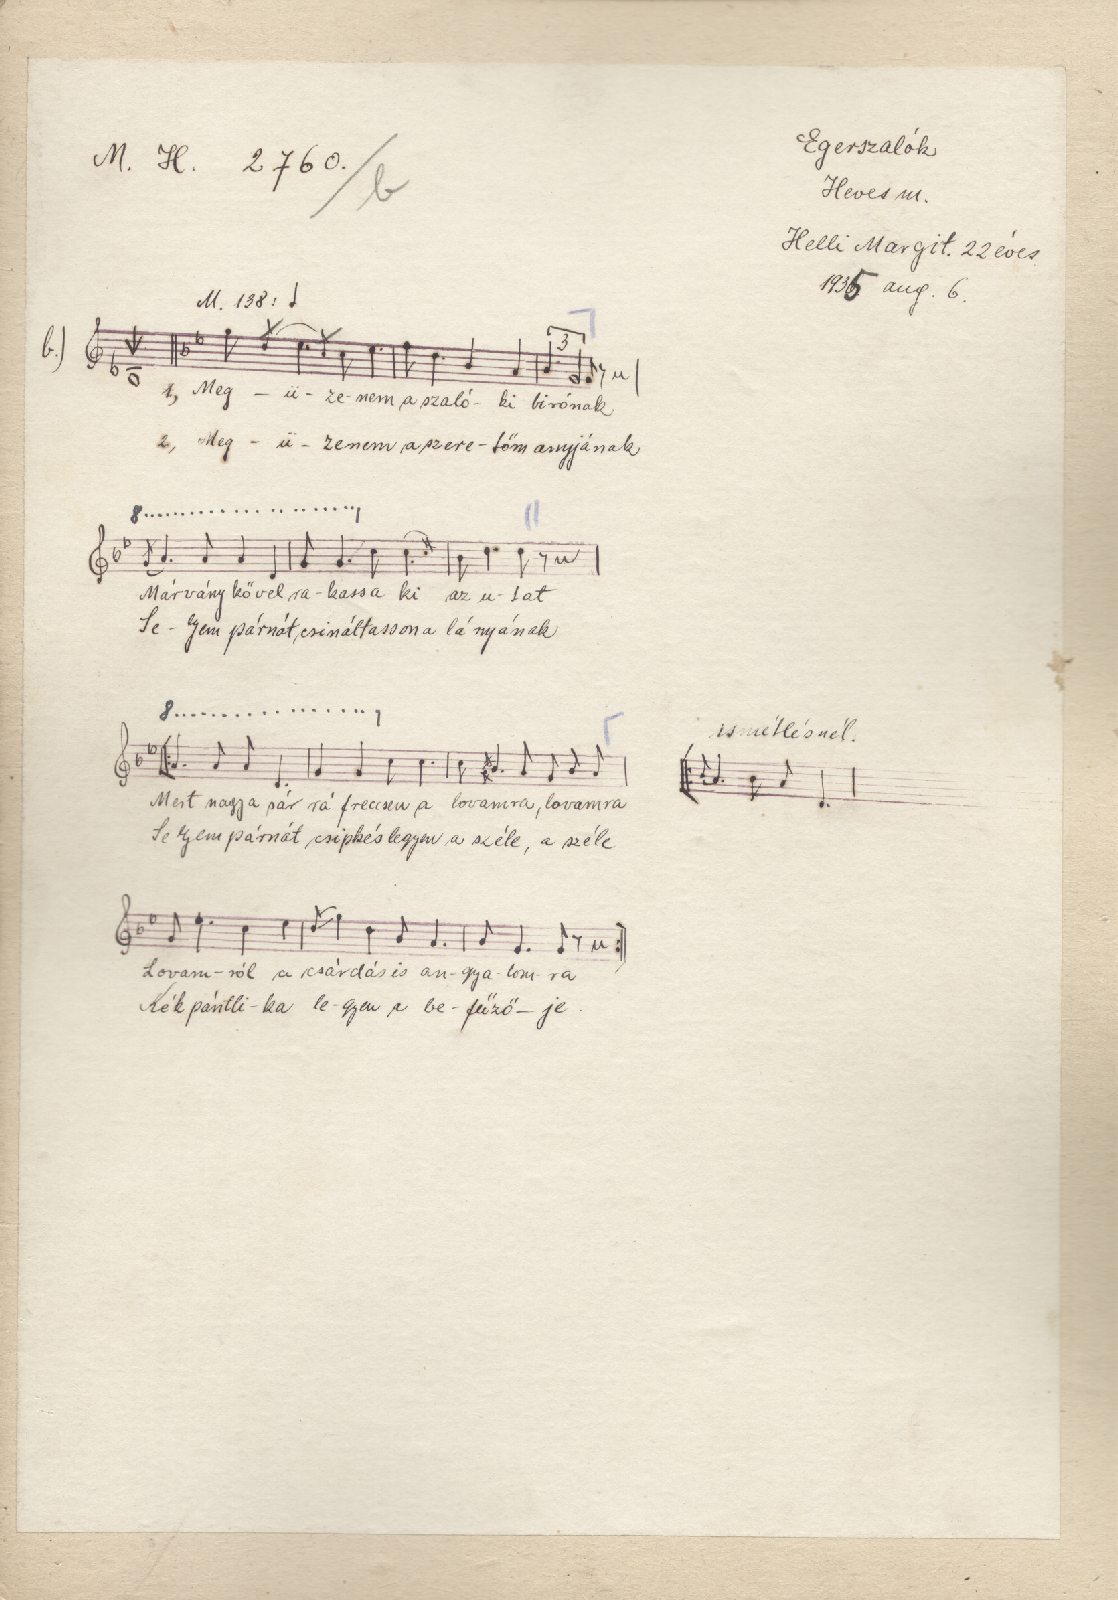 M. H. 2760./b
Egerszalók
Heves m.
Helli Margit. 22 éves
1935 aug. 6.
M. 138:
b.)
3
1, Meg - ü - ze - nem a szaló - ki birónak
2, Meg - ü - zenem a szere - tőm anyjának
8
Márvány kővel ra - kassa ki az u - tat
Se - lyem párnát, csináltasson a lá nyának
8
ismétlésnél.
Mert nagy a sár rá freccsen a lovamra, lovamra
Se lyem párnát, csipkés legyen a széle, a széle
Lovam - ról a csárdás is an - gya - lom - ra
Kék pántli - ka le - gyen a be - fűző - je.